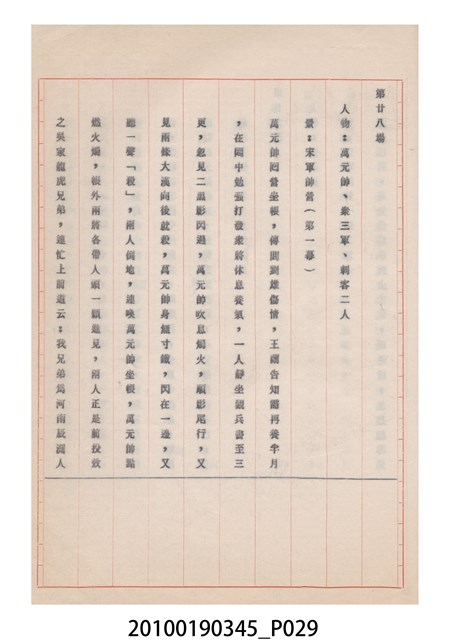 第廿八場
人物：萬元帥、眾三軍、刺客二人
景：宋軍帥營（第一幕）
萬元帥回營坐帳，傳問劉雄傷情，王翮告知需再養半月
，在閣中勉強打發眾將休息養氣，一人靜坐觀兵書至三
更，忽見二黑影閃過，萬元帥吹息燭火，順影尾行，又
見兩條大漢向後就殺，萬元帥身無寸鐵，閃在一邊，又
聽一聲「殺」，兩人倒地，連喚萬元帥坐帳，萬元帥點
燃火燭，帳外兩將各帶人頭一顆進見，兩人正是前投效
之吳家龍虎兄弟，連忙上前道云：我兄弟為河南辰溜人
20100190345_P029